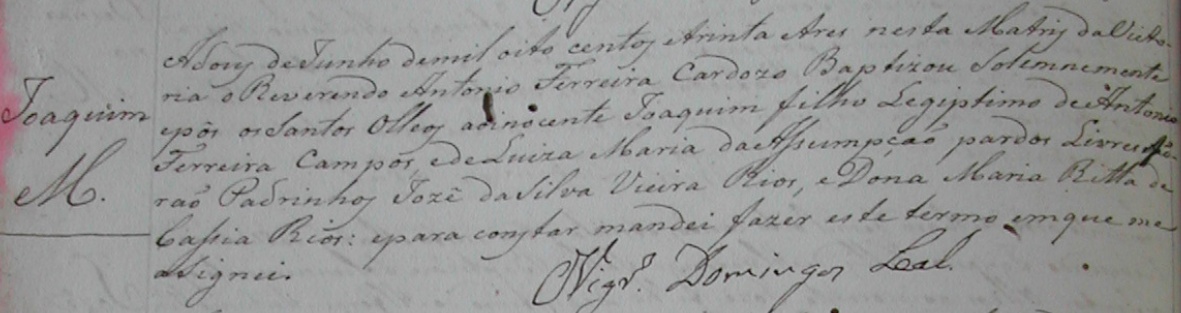 Joaquim
M.
A dous de Junho de mil oito centos e trinta e tres nesta Matris da Victo-
ria o Reverendo Antonio Ferreira Cardozo Baptizou Solemnemente
e pôs os Santos Olleos ao inocente Joaquim filho Legiptimo de Antonio
Ferreira Campos, e de Luiza Maria da Assumpção pardos Livres fo-
rão Padrinhos Jozê da Silva Vieira Rios, e Dona Maria Ritta de
Cassia Rios: e para constar mandei fazer este termo em que me
asignei.
Vigr.º Domingos Leal.